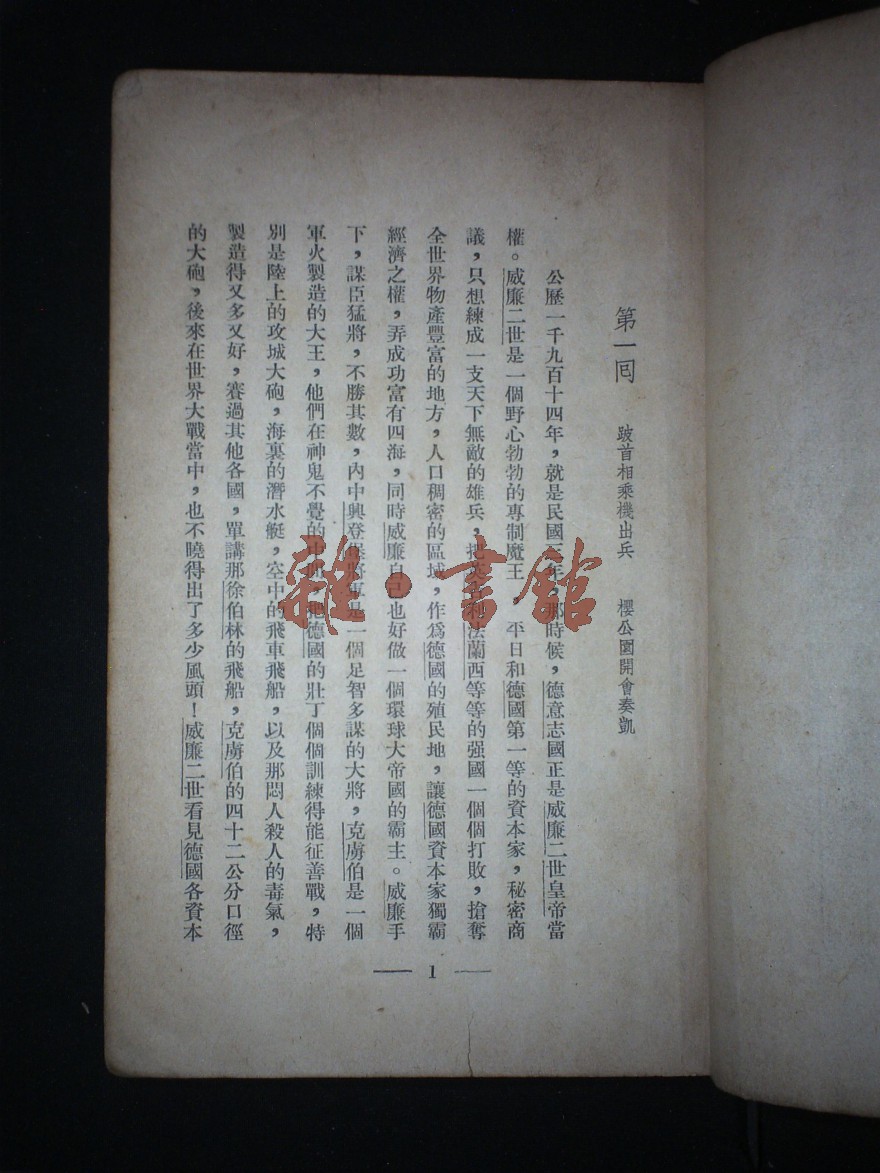 第一囘　跛首相乘機出兵　櫻公園開會奏凱
公歷一千九百十四年，就是民國三年，那時候，德意志國正是威廉二世皇帝當
權。威廉二世是一個野心勃勃的專制魔王，平日和德國第一等的資本家，秘密商
議，只想練成一支天下無敵的雄兵，把英吉利法蘭西等等的强國一個個打敗，搶奪
全世界物產豐富的地方，人口稠密的區域，作爲德國的殖民地，讓德國資本家獨霸
經濟之權，弄成功富有四海，同時威廉自己也好做一個環球大帝國的霸主。威廉手
下，謀臣猛將，不勝其數，內中興登堡將軍是一個足智多謀的大將，克虜伯是一個
軍火製造的大王，他們在神鬼不覺的中間，把德國的壯丁個個訓練得能征善戰，特
別是陸上的攻城大砲，海裏的潛水艇，空中的飛車飛船，以及那悶人殺人的毒氣，
製造得又多又好，賽過其他各國，單講那徐伯林的飛船，克虜伯的四十二公分口徑
的大砲，後來在世界大戰當中，也不曉得出了多少風頭！威廉二世看見德國各資本
1
雜·書館